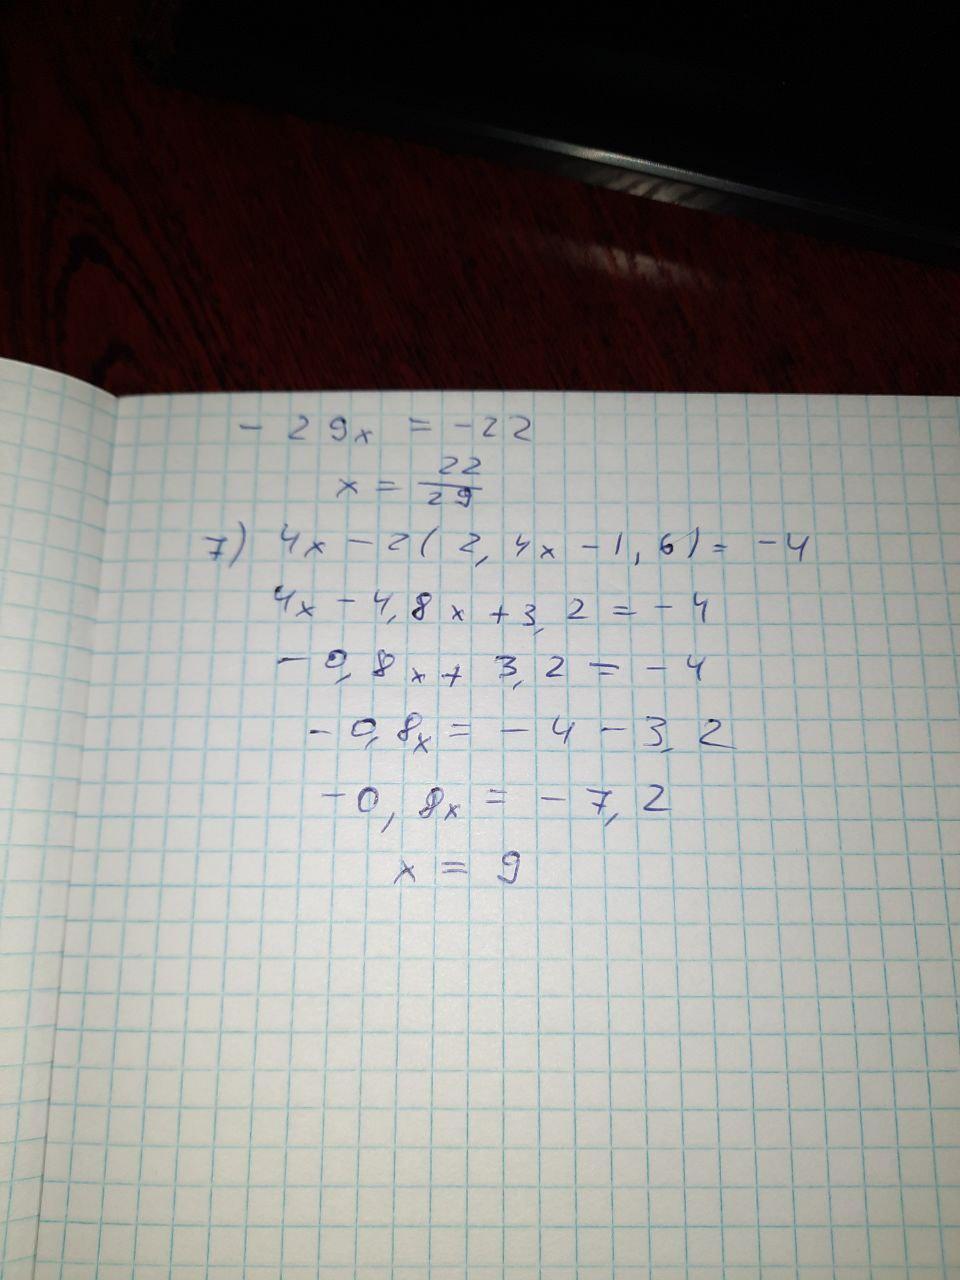 - 29x = -22
x = 22/29
7) 4x - 2(2,4x - 1,6) = -4
4x - 4,8x + 3,2 = -4
-0,8x + 3,2 = -4
-0,8x = -4 - 3,2
-0,8x = -7,2
x = 9